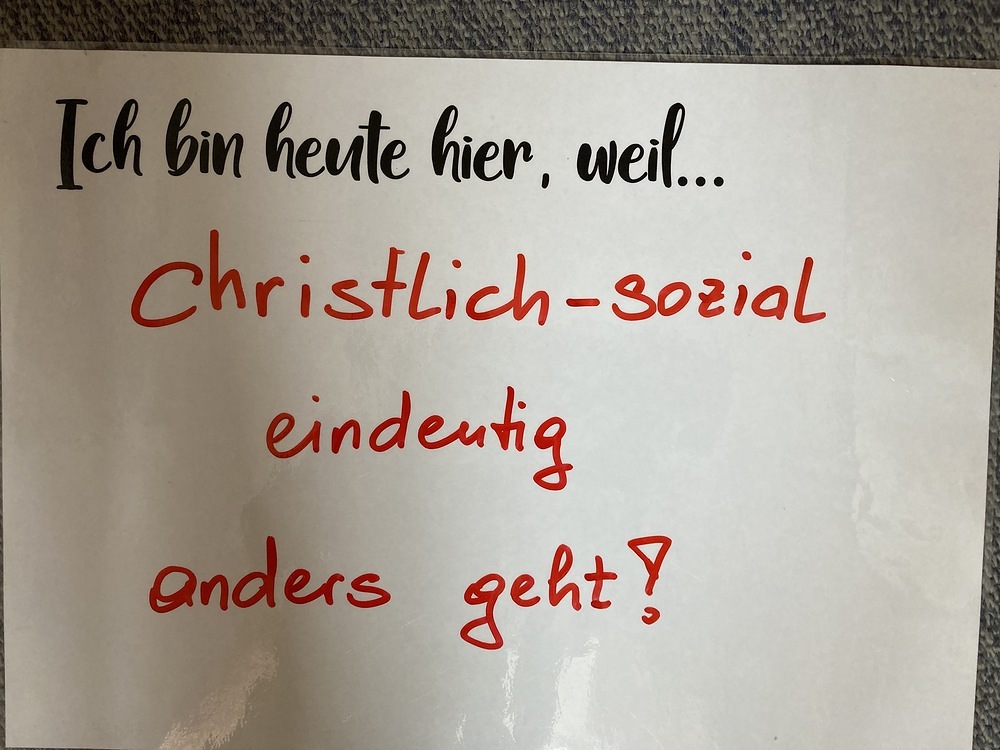 Ich bin heute hier, weil...
Christlich-sozial
eindeutig
anders geht!